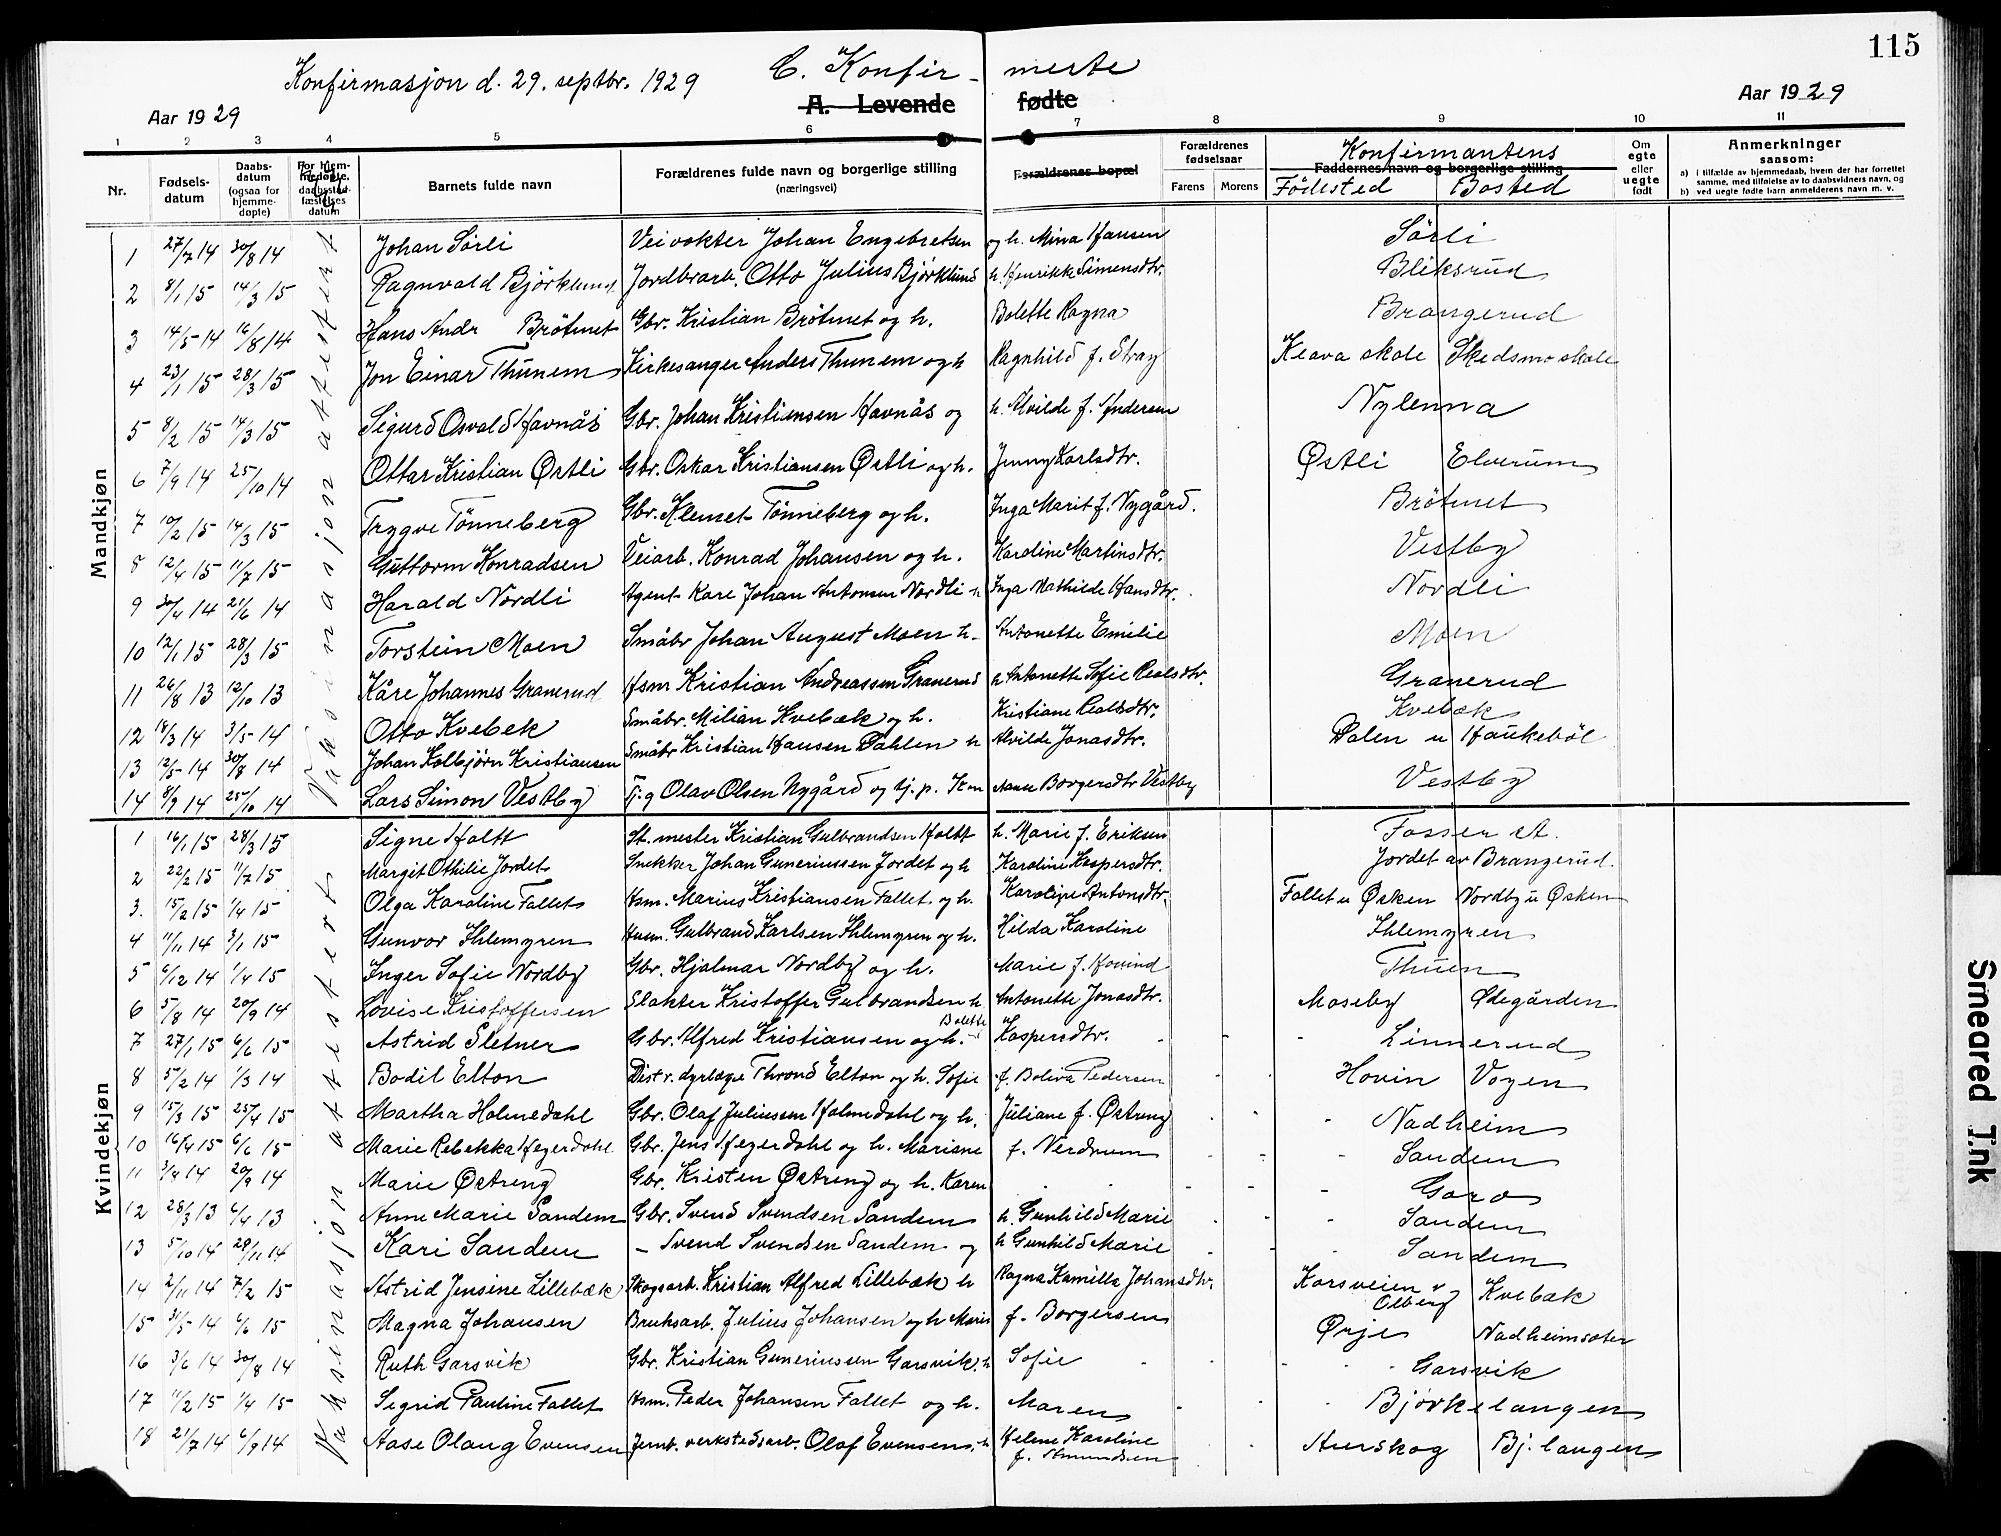 115
Konfirmasjon d. 29. septbr. 1929 C. Konfir- merte
A. Levende fødte
Aar 1929 Aar 1929
1 2 3 4 5 6 7 8 9 10 11
Nr. Fødsels-datum Daabs-datum (ogsaa for hjemme-døpte) Barnets fulde navn Forældrenes fulde navn og borgerlige stilling (næringsvei) Forældrenes bopæl Forældrenes fødselsaar Farens Morens Faddernes navn og borgerlige stilling Konfirmantens Fødested Bosted Om egte eller uegte født Anmerkninger saasom:
a) i tilfælde av hjemmedaab, hvem der har forrettet samme, med tilføielse av to daabsvidners navn, og
b) ved uegte født barn anmelderens navn m. v.
Mandkjøn
Vaksinasjon attestert
1 27/7 14 30/8 14 Johan Sørli Veivokter Johan Engebretsen og h. Mina Hansen Sørli
2 8/1 15 14/3 15 Ragnvald Björklund Jordbrarb. Otto Julius Björklund h. Henrikke Simensdtr. Bliksrud
3 14/5 14 16/8 14 Hans Andr Brötmet Gbr. Kristian Brötmet og h. Bolette Ragna Brangerud
4 23/1 15 28/3 15 Jon Einar Thunem Kirkesanger Anders Thunem og h Ragnhild f. Stray Kleava skole Skedsmo skole
5 8/2 15 14/3 15 Sigurd Osvald Havnås Gbr. Johan Kristiansen Havnås og h. Alvilde f. Andersen Nylenna
6 7/9 14 25/10 14 Ottar Kristian Østli Gbr. Oskar Kristiansen Østli og h. Jenny Karlsdtr. Østli Elverum
7 10/2 15 14/3 15 Trygve Tønneberg Gbr. Klemet Tønneberg og h. Inga Marit f. Nygård. Brötmet
8 12/4 15 11/7 15 Guttorm Konradsen Veiarb. Konrad Johansen og h. Karoline Martinsdtr. Vestby
9 30/4 14 21/6 14 Harald Nordli Agent Kare Johan Antonsen Nordli h Inga Mathilde Hansdtr. Nordli
10 12/1 15 28/3 15 Torstein Moen Småbr Johan August Moen h. Antonette Emilie Moen
11 26/8 13 12/10 13 Kåre Johannes Granerud Hsm Kristian Andreassen Granerud h Antonette Sofie Realsdtr. Granerud
12 18/3 14 3/5 14 Otto Kvebek Småbr. Milian Kvebæk og h. Kristiane Realsdtr. Kvebæk
13 12/5 14 30/8 14 Johan Kolbjørn Kristiansen Småbr Kristian Hansen Dahlen h Alvilde Jonasdtr. Dalen u Haukebøl
14 8/9 14 25/10 14 Lars Simon Vestby Tj. g Olav Olsen Nygård og tj. p. Anne Borgersdtr Vestby Vestby
Kvindekjøn
Vaksinasjon attestert
1 16/1 15 28/3 15 Signe Holtt St. mester Kristian Gulbrandsen Holtt h. Marie f. Eriksen Fosser st.
2 22/2 15 11/7 15 Margit Othilie Jordet Snekker Johan Guneriussen Jordet og h Karoline Kaspersdtr. Jordet av Brangerud.
3. 15/2 15 1/4 15 Olga Karoline Fallet Hsm. Marius Kristiansen Fallet og h. Karoline Antonsdtr. Fallet u Øsken Nordby u Øsken
4 11/11 14 3/1 15 Gunvor Ihlemyren Husm. Gulbrand Karlsen Ihlemyren og h. Hilda Karoline Ihlemyren
5 6/12 14 1/4 15 Inger Sofie Nordby Gbr. Hjalmar Nordby og h. Marie f. Hovind Thuen
6 5/8 14 20/9 14 Lovise Kristoffersen Slakter Kristoffer Gulbrandsen h Antonette Jonasdtr. Moseby Ødegården
7 27/1 15 6/6 15 Astrid Sletner Gbr. Alfred Kristiansen og h. Bolette Kaspersdtr. Linnerud
8 5/2 14 1/3 14 Bodil Elton Distr. dyrlæge Thrond Elton og h. Sofie f. Boliva Pedersen Hovin Vogen
9 15/3 15 25/4 15 Martha Holmedahl Gbr. Olaf Juliussen Holmedahl og h. Juliane f. Østreng Nadheim
10 16/4 15 6/6 15 Marie Rebekka Hegerdahl Gbr. Jens Hegerdahl og h. Mariane f. Nerdrum Sandem
11 3/8 14 20/9 14 Marie Østreng Gbr. Kristen Østreng og h. Karen Gara
12 28/3 13 6/4 13 Anne Marie Sandem Gbr. Svend Svendsen Sandem h. Gunhild Marie Sandem
13 5/10 14 29/11 14 Kari Sandem - Svend Svendsen Sandem og h Gunhild Marie Sandem
14 2/11 14 7/2 15 Astrid Jensine Lillebæk Skogsarb. Kristian Alfred Lillebæk h Ragna Kamilla Johansdtr. Korsveien v Olberg Kvebæk
15 31/5 14 6/6 15 Magna Johansen Bruksarb. Julius Johansen og h Marie f. Borgersen Ørje Nadheimsæter
16 3/6 14 30/8 14 Ruth Garsvik Gbr. Kristian Guneriussen Garsvik. h Sofie Garsvik
17 11/2 15 1/4 15 Sigrid Pauline Fallet Hsm. Peder Johansen Fallet og h. Maren Bjørkelangen
18 21/7 14 6/9 14 Aase Olaug Evensen Jernb. verkstedsarb. Olaf Evensen. h Helene Karoline f. Amundsen Aurskog Bj. langen
Smeared Ink